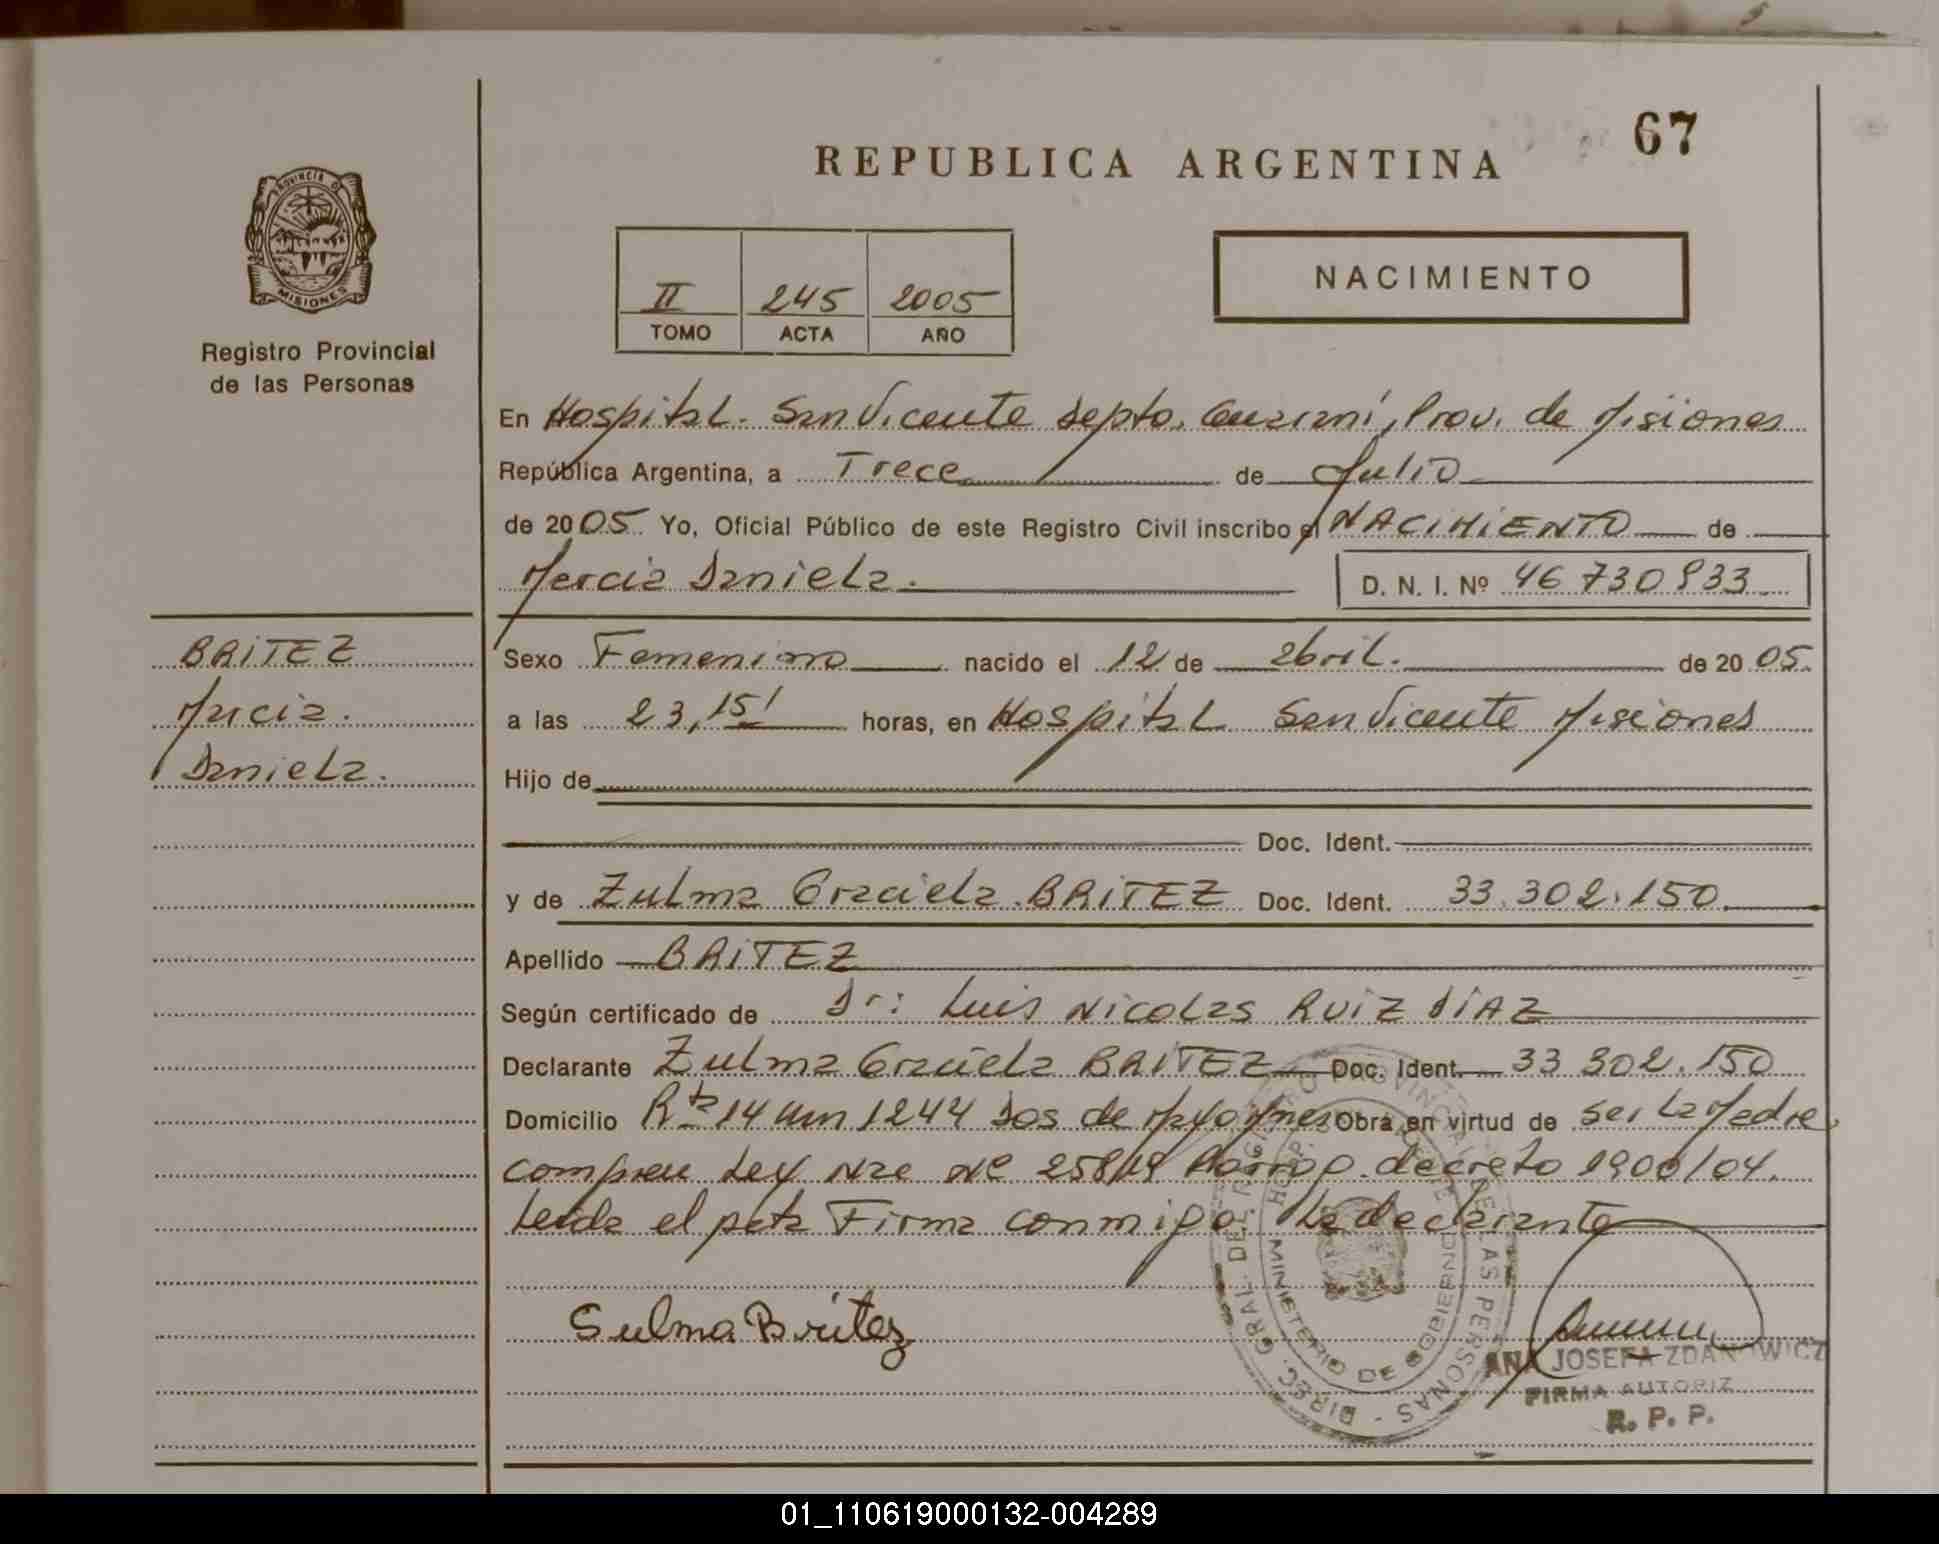 67
REPUBLICA ARGENTINA
PROVINCIA DE
MISIONES
Registro Provincial
de las Personas
II 245 2005
TOMO ACTA AÑO
NACIMIENTO
En Hospital. San Vicente Depto. Guaraní, Prov. de Misiones
República Argentina, a Trece de Julio
de 2005 Yo, Oficial Público de este Registro Civil inscribo el NACIMIENTO de
Marcia Daniela. D. N. I. Nº 46 730 933
BRITEZ
Marcia.
Daniela.
Sexo Femenino nacido el 12 de abril. de 2005.
a las 23,15' horas, en Hospital San Vicente Misiones
Hijo de
Doc. Ident.
y de Zulma Graciela BRITEZ Doc. Ident. 33.302.150.
Apellido BRITEZ
Según certificado de Dr: Luis Nicolas RUIZ DIAZ
Declarante Zulma Graciela BRITEZ Doc. Ident. 33 302.150
Domicilio Rta 14 km 1244 Dos de Mayo Mnes Obra en virtud de ser la Madre
Ley decreto
Leida el acta Firma conmigo. La declarante
Sulma Britez
DIREC. GRAL. DEL REGISTRO PROVINCIAL DE LAS PERSONAS
MINISTERIO DE GOBIERNO
ANA JOSEFA ZDANOWICZ
FIRMA AUTORIZ.
R. P. P.
01_110619000132-004289